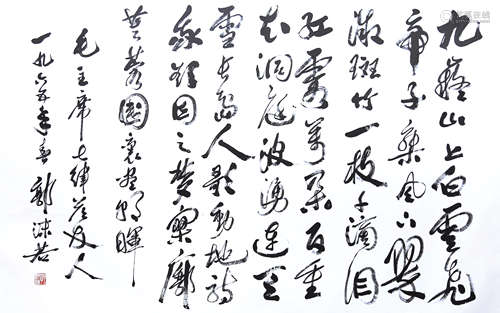 九嶷山上白雲飛
帝子乘風下翠
微斑竹一枝千滴泪
紅霞萬朵百重
衣洞庭波湧連天
雪長島人歌動地詩
我欲因之夢寥廓
芙蓉國裏盡朝暉
毛主席七律答友人
一九六五年春 郭沫若